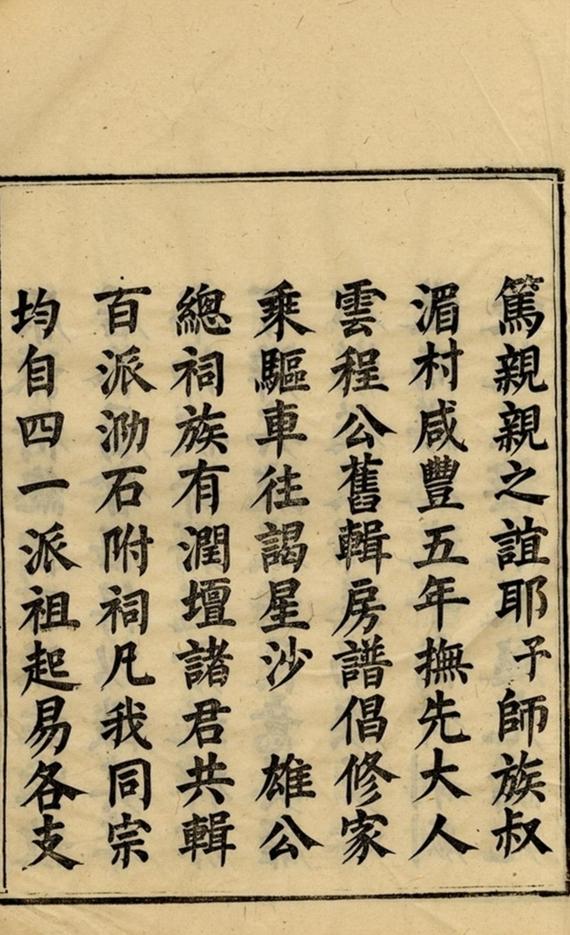 篤親親之誼耶予師族叔
湄村咸豐五年撫先大人
雲程公舊輯房譜倡修家
乘驅車往謁星沙 雄公
總祠族有潤壇諸君共輯
百派泐石附祠凡我同宗
均自四一派祖起易各支